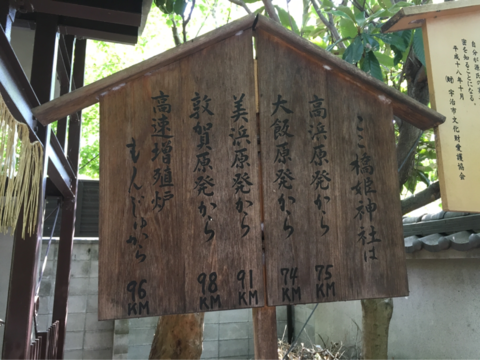 ここ橋姫神社は
高浜原発から 75KM
大飯原発から 74KM
美浜原発から 91KM
敦賀原発から 98KM
高速増殖炉
もんじゅから 96KM
平成十八年十月
宇治市文化財愛護協会